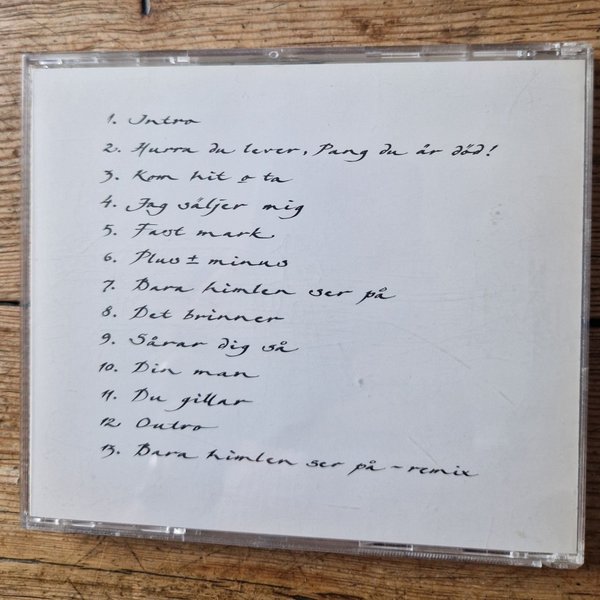 1. Intro
2. Hurra du lever, Pang du är död!
3. Kom hit o ta
4. Jag säljer mig
5. Fast mark
6. Plus ± minus
7. Bara himlen ser på
8. Det brinner
9. Sårar dig så
10. Din man
11. Du gillar
12. Outro
13. Bara himlen ser på - remix